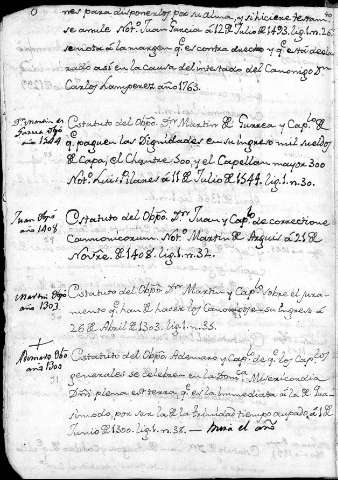 nes para disponerlos por su alma, y si hiciere testam.
se anule Not.º Juan Garcia à 12 de Julio de 1493. lig. 1. n. 26.
se nota à la margen q.e es contra q.e está decla
rado asi en la causa del intestado del Canonigo Dn
Carlos Lamperez año 1763.
Dn Martin de
Gurrea Obpo
año 1544
Estatuto del Obpo. Dn Martin de Gurrea y Cap.lo de
q.e paguen las Dignidades en su ingreso mil sueldos
de Capa, el Chantre 500, y el Capellan mayor 300
Not.º Luis Pilares à 11 de Julio de 1544. lig. 1. n. 30.
Juan Obpo
año 1408
Estatuto del Obpo. Dn Juan y Cap.º de correctione
Canonicorum. Not.º Martin de Arguis à 21 de
Novre. de 1408. lig. 1. n. 32.
Martin Obpo
año 1303
Estatuto del Obpo. Dn Martin y Cap.º sobre el jura-
mento q.e han de hacer los Canonigos en su ingreso à
26 de Abril de 1303. lig. 1. n. 35.
Obpo
año 1300
Estatuto del Obpo. Ademaro y Cap.º de q.e los Cap.los
generales se celebren en la Dom.ca Misericordia
Dñi plena est terra, q.e es la immediata à la de Qua
simodo, por ser la de la Trinidad tiempo ocupado, à 1 de
Junio de 1300. lig. 1. n. 38. — mira el año